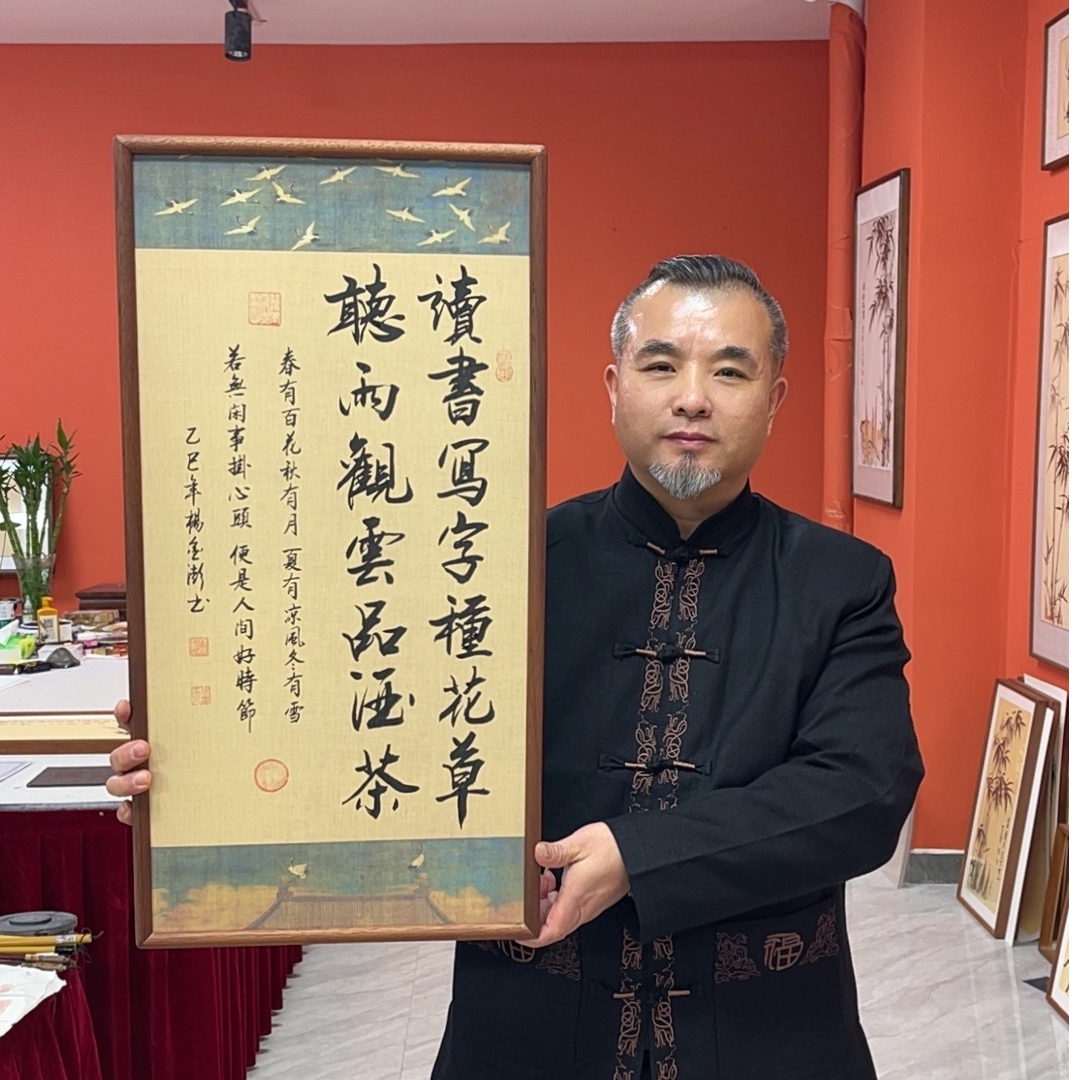 讀書寫字種花草
聽雨觀雲品酒茶
春有百花秋有月 夏有凉風冬有雪
若無闲事掛心頭 便是人间好時節
乙巳年楊金澎书
福